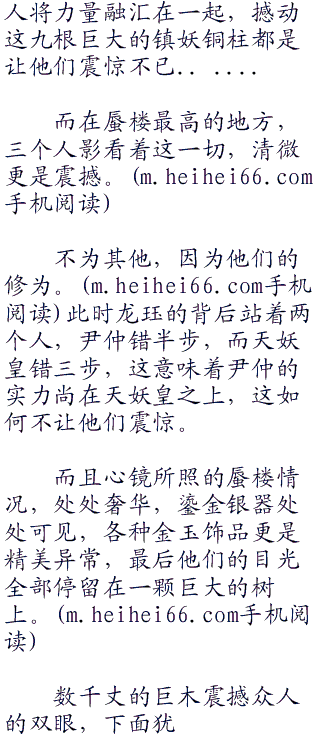 人将力量融汇在一起，撼动
这九根巨大的镇妖铜柱都是
让他们震惊不已．．．．．．
而在蜃楼最高的地方，
三个人影看着这一切，清微
更是震撼。(m.heihei66.com
手机阅读)
不为其他，因为他们的
修为。(m.heihei66.com手机
阅读)此时龙珏的背后站着两
个人，尹仲错半步，而天妖
皇错三步，这意味着尹仲的
实力尚在天妖皇之上，这如
何不让他们震惊。
而且心镜所照的蜃楼情
况，处处奢华，鎏金银器处
处可见，各种金玉饰品更是
精美异常，最后他们的目光
全部停留在一颗巨大的树
上。(m.heihei66.com手机阅
读)
数千丈的巨木震撼众人
的双眼，下面犹